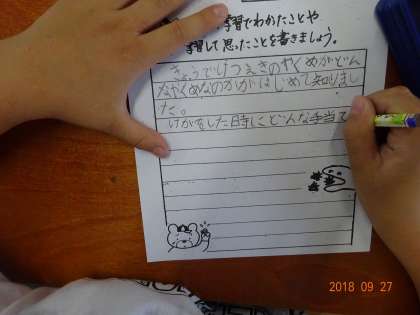 学習でわかったことや
学習して思ったことを書きましょう。
きょうでけつえきのやくめがどん
なやくめなのかがはじめて知りまし
た。
けがをした時にどんな手当て
2018 09 27